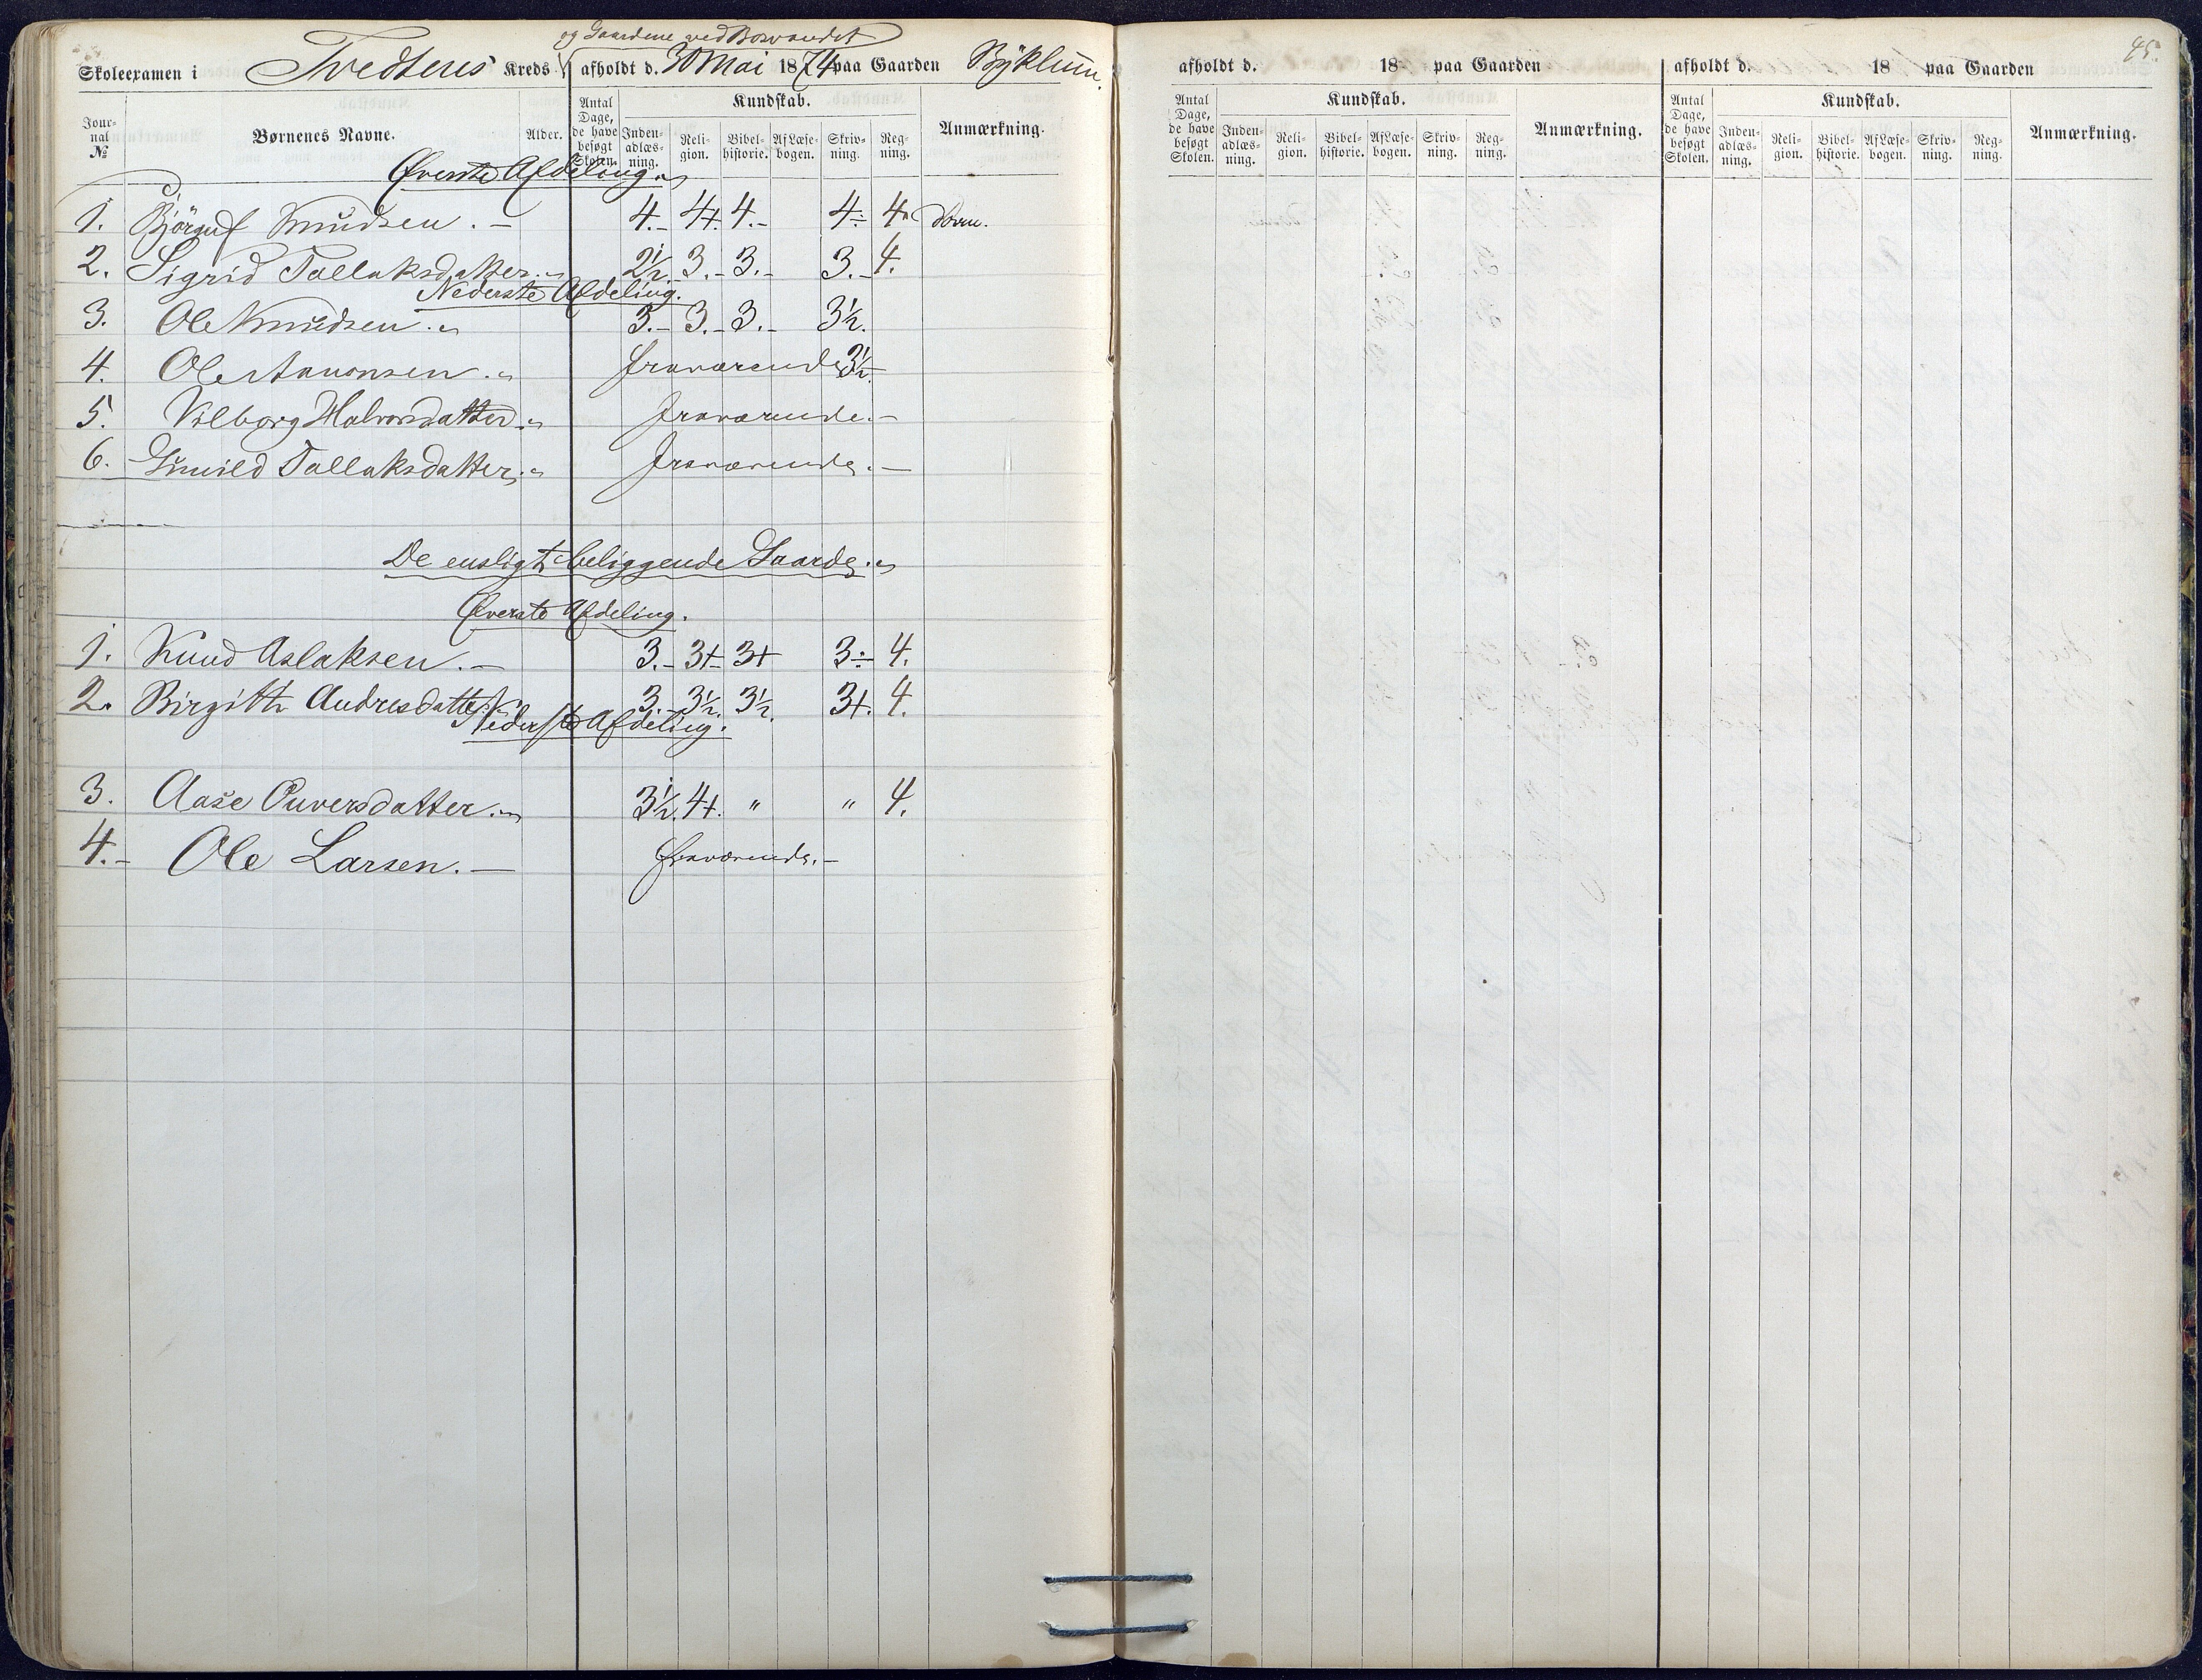 og Gaardene ved Bosvandet
Skoleexamen i Tvedtens Kreds afholdt d. 30 Mai 1874 paa Gaarden Byklum.
Jour-nal № Børnenes Navne. Alder. Antal Dage, de have besøgt Skolen. Kundskab. Inden-adlæs-ning. Reli-gion. Bibel-historie. Af Læse-bogen. Skriv-ning. Reg-ning. Anmærkning.
Øverste Afdeling.
1. Björguf Knudsen. 4. 4+. 4. 4÷ 4.
2. Sigrid Tallaksdatter. 2½. 3. 3. 3. 4.
Nederste Afdeling.
3. Ole Knudsen. 3. 3. 3. 3½.
4. Ole fraværende 3½.
5. Vilborg Halvorsdatter. fraværende.
6. Gunild Tallaksdatter. fraværende.
De ensligt beliggende Gaarde.
Øverste Afdeling.
1. Knud Aslaksen. 3. 3+ 3+ 3÷ 4.
2. Birgith Andresdatter. 3. 3½. 3½. 3+. 4.
Nederste Afdeling.
3. Aase Ouversdatter. 3½. 4+. " " 4.
4. Ole Larsen. fraværende.
45.
afholdt d. 18 paa Gaarden
Antal Dage, de have besøgt Skolen. Kundskab. Inden-adlæs-ning. Reli-gion. Bibel-historie. Af Læse-bogen. Skriv-ning. Reg-ning. Anmærkning.
afholdt d. 18 paa Gaarden
Antal Dage, de have besøgt Skolen. Kundskab. Inden-adlæs-ning. Reli-gion. Bibel-historie. Af Læse-bogen. Skriv-ning. Reg-ning. Anmærkning.